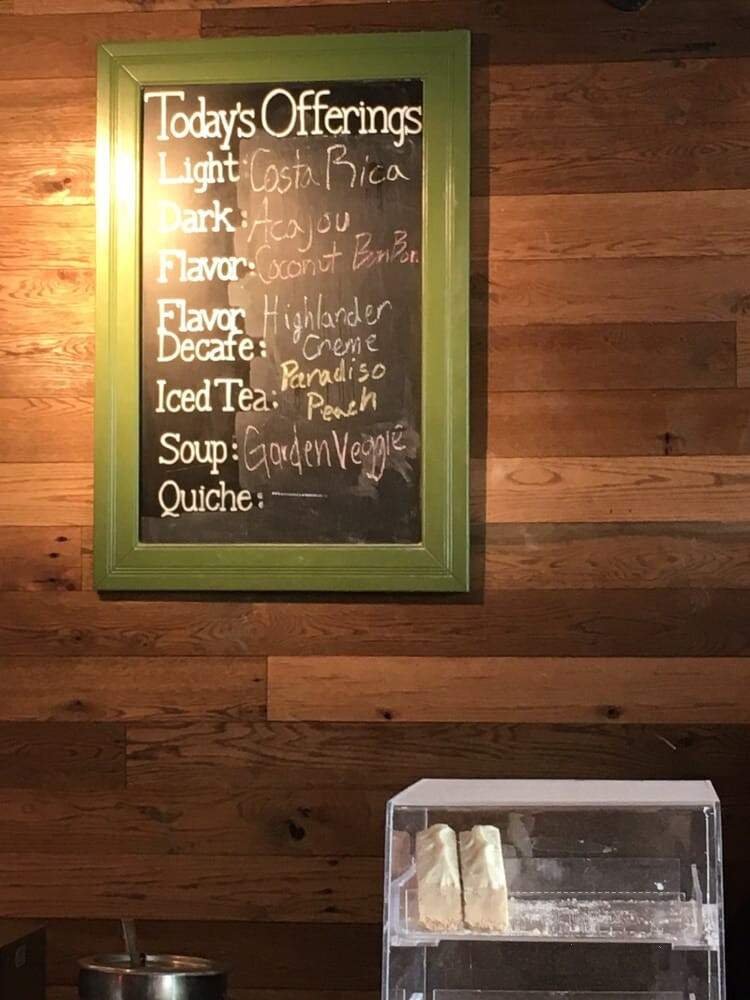 Today's Offerings
Light: Costa Rica
Dark: Acajou
Flavor: Coconut BonBon
Flavor Highlander
Decafe: Creme
Paradiso
Iced Tea: Peach
Soup: Garden Veggie
Quiche: